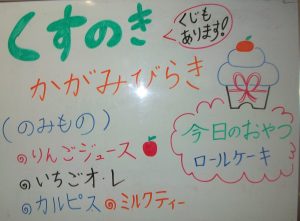 くすのき
くじも
あります!
かがみびらき
(のみもの)
◎りんごジュース
◎いちごオ・レ
◎カルピス ◎ミルクティー
今日のおやつ
ロールケーキ